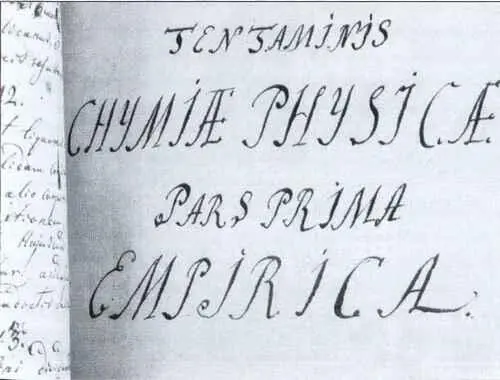 TENTAMINIS
CHYMIÆ PHYSICÆ
PARS PRIMA
EMPIRICA.